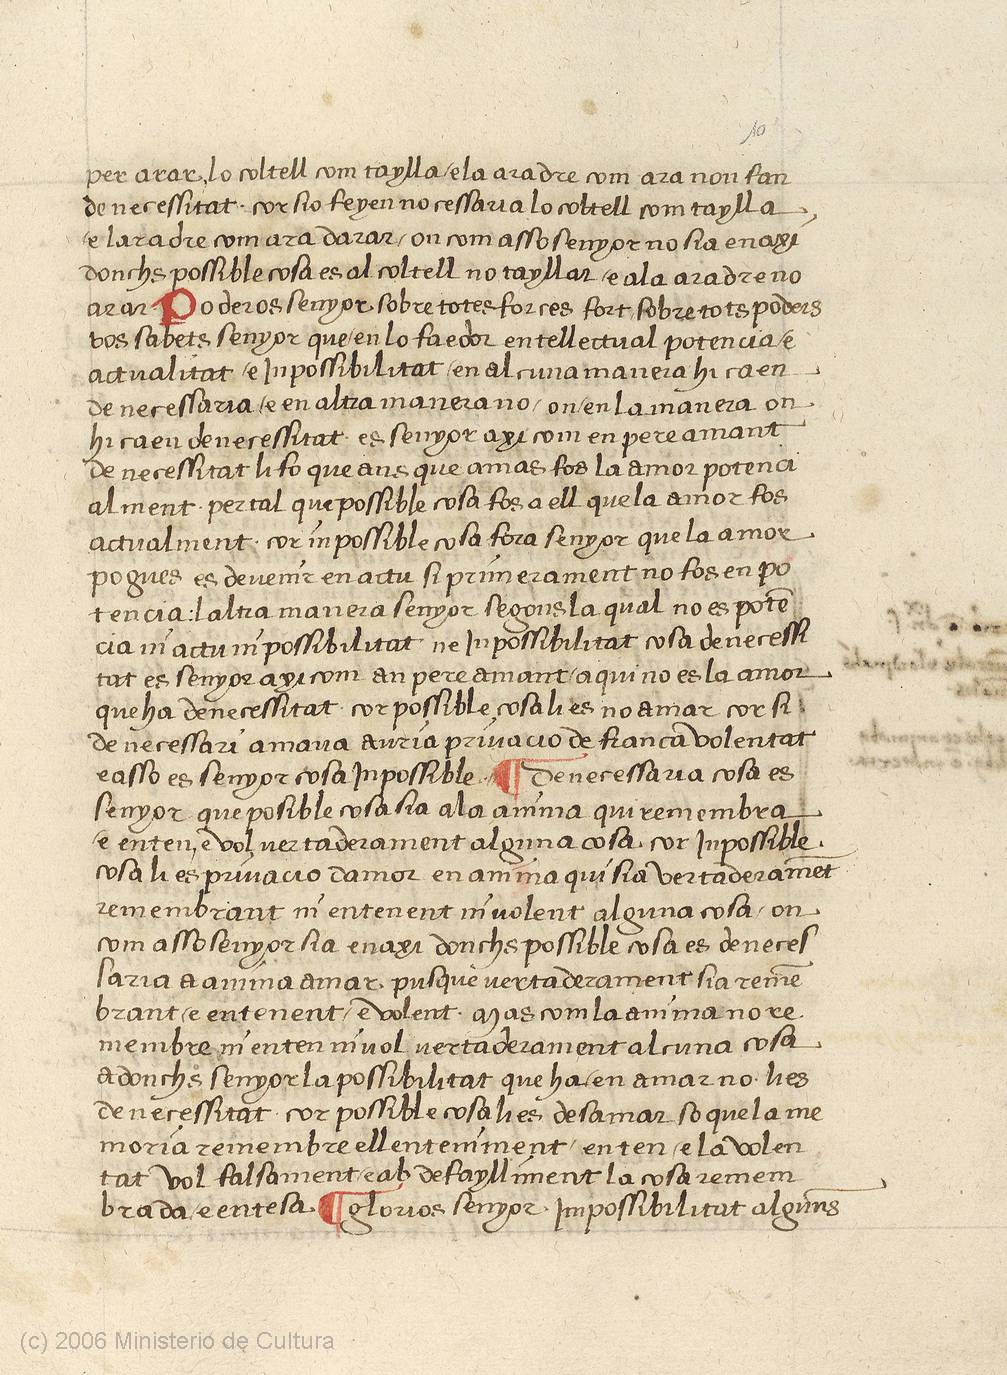 10
per arar, lo coltell com taylla / e la aradre com ara non fan
de necessitat · cor sio feyen no cessaria lo coltell com taylla
/ e laradre com ara darar / on com asso senyor no sia en axi
donchs possible cosa es al coltell no tayllar / e ala aradre no
arar · Poderos senyor sobre totes forces fort / sobre tots poders
vos sabets senyor que / en lo faedor entellectual potencia / e
actualitat / e Inpossibilitat / en alcuna manera hi caen
de necessaria / e en altra manera no / on / en la manera on
hi caen de necessitat · es senyor axi com en pere amant
de necessitat li fo que ans que amas fos la amor potenci
alment · per tal que possible cosa fos a ell que la amor fos
actualment · cor inpossible cosa fora senyor que la amor
pogues es devenir en actu si primerament no fos en po
tencia: laltra manera senyor segons la qual no es potē
cia ni actu ni possibilitat ne Inpossibilitat cosa de necessi
tat es senyor axi com an pere amant / aqui no es la amor
que ha de necessitat · cor possible cosa li es no amar cor si
de necessari amava auria privacio de franca volentat
e asso es senyor cosa Inpossible · ¶ De necessaria cosa es
senyor que posible cosa sia ala anima qui remembra
/ e enten, e vol vertaderament alguna cosa · cor Inpossible
cosa li es privacio damor en anima qui sia vertaderamēt
remembrant ni entenent ni volent alguna cosa / on
com asso senyor sia enaxi donchs possible cosa es de neces
saria a anima amar · pusque vertaderament sia remē
brant / e entenent / e volent · Mas com la anima no re
membre ni enten ni vol vertaderament alcuna cosa
adonchs senyor la possibilitat que ha / en amar no · li es
de necessitat · cor possible cosa li es desamar so que la me
moria remembre e llenteniment / enten / e la volen
tat vol falsament · e ab defaylliment la cosa remem
brada / e entesa · ¶ glorios senyor · Impossibilitat alguns
(c) 2006 Ministerio de Cultura